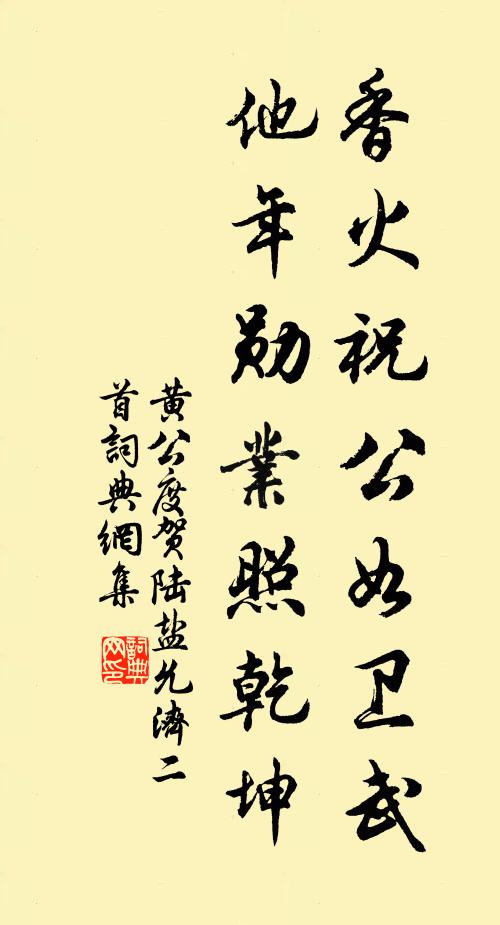 香火祝公如卫武
他年勋業照乾坤
黄公度贺陆盐允濟二
首詞典網集
詞典網印